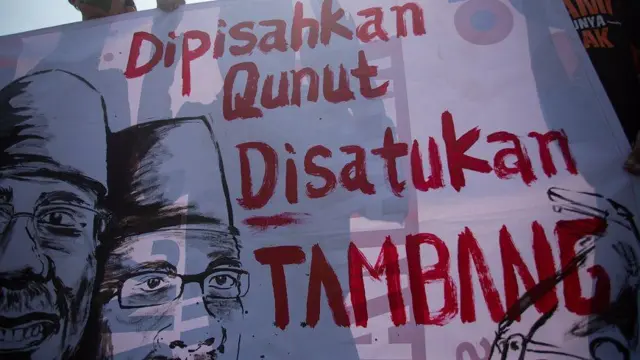 Dipisahkan
Qunut
Disatukan
TAMBANG
UNYA
AK